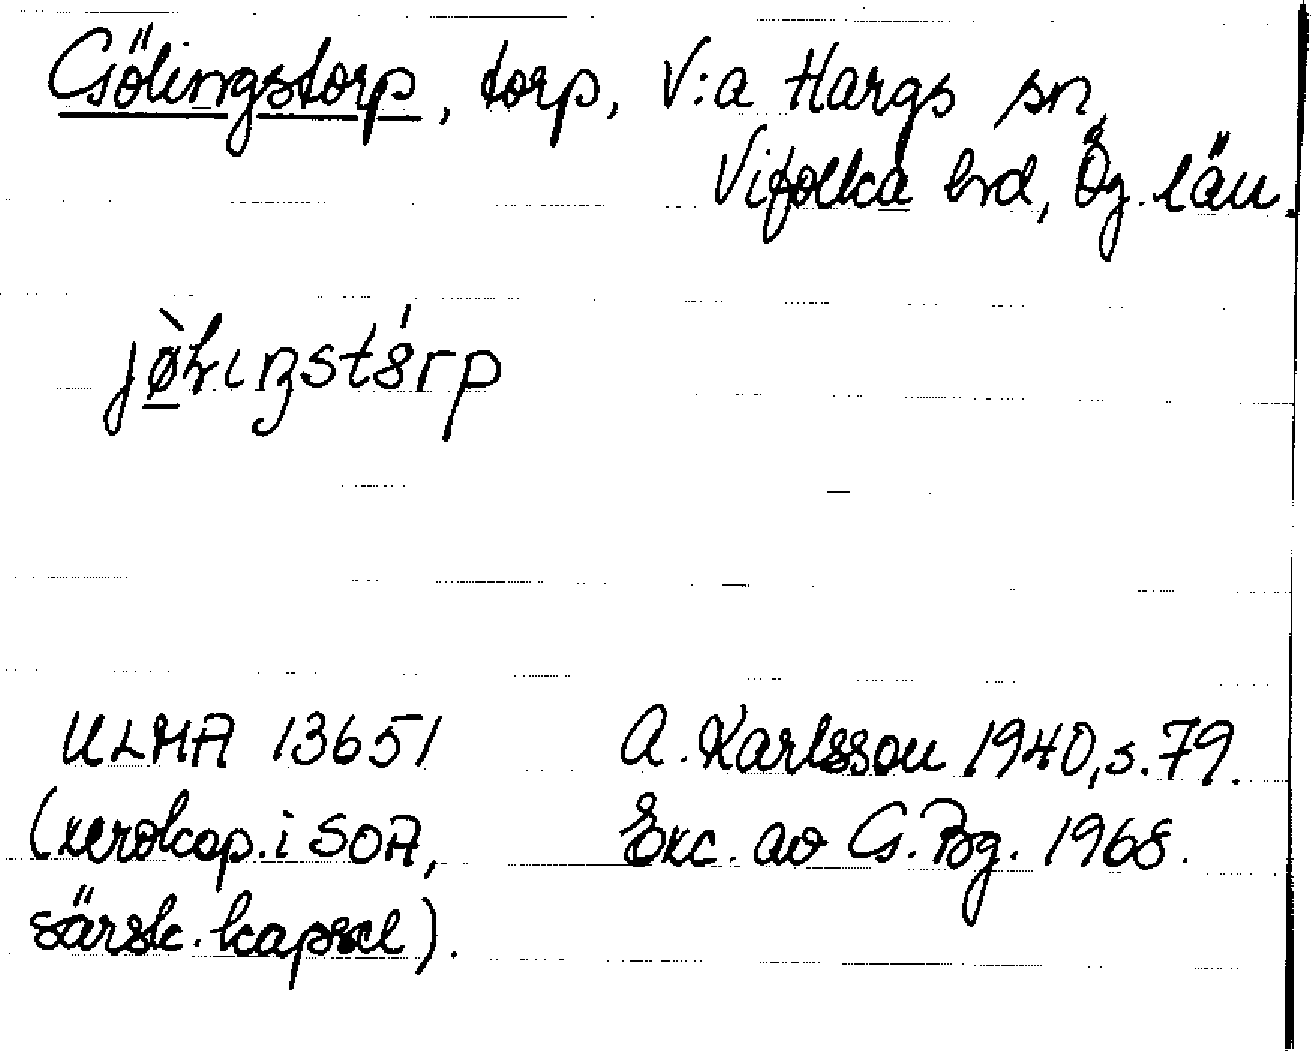 Gölingstorp, torp, V:a Hargs sn,
Vifolka hrd, Ög. län.
jø̀lıŋstór̀p
ULMA 13651 A. Karlsson 1940, s. 79.
(xerokop. i SOA, Exc. av G. Bg. 1968.
särsk. kapsel).